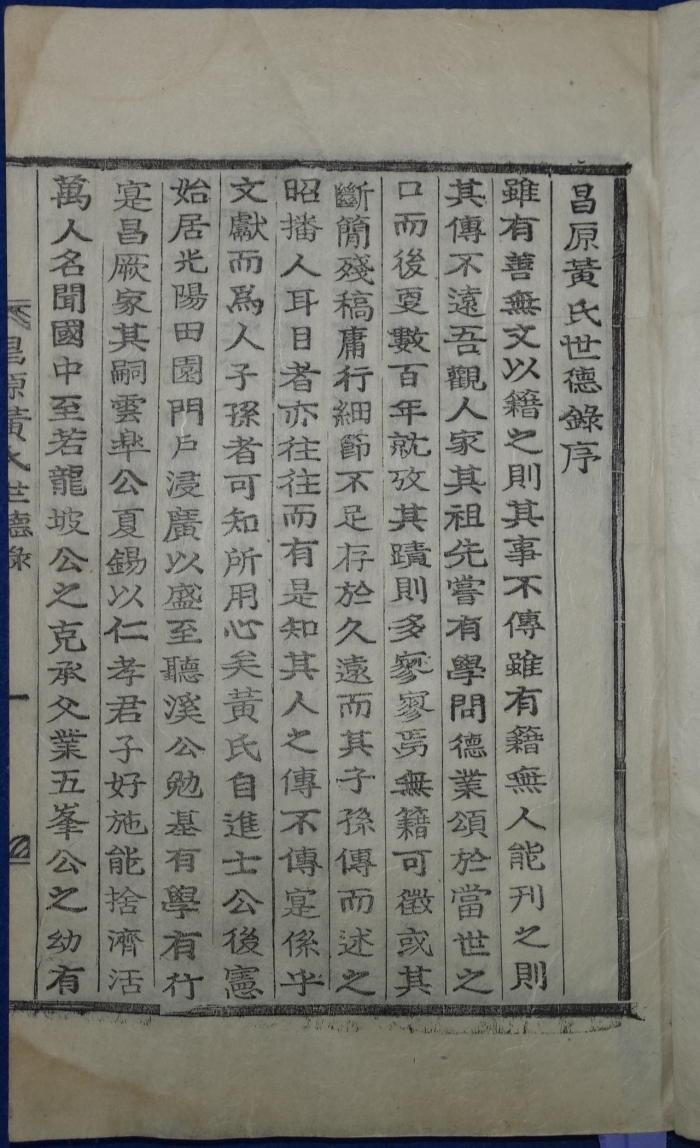 昌原黃氏世德錄序
雖有善無文以籍之則其事不傳雖有籍無人能刊之則
其傳不遠吾觀人家其祖先嘗有學問德業頌於當世之
口而後夏數百年就攷其蹟則多寥寥焉無籍可徵或其
斷簡殘稿庸行細節不足存於久遠而其子孫傳而述之
昭播人耳目者亦往往而有是知其人之傳不傳寔係乎
文獻而爲人子孫者可知所用心矣黃氏自進士公後憲
始居光陽田園門戶浸廣以盛至聽溪公勉基有學有行
寔昌厥家其嗣雲皐公夏錫以仁孝君子好施能捨濟活
萬人名聞國中至若龍坡公之克承父業五峯公之幼有
昌原黃氏世德錄
一